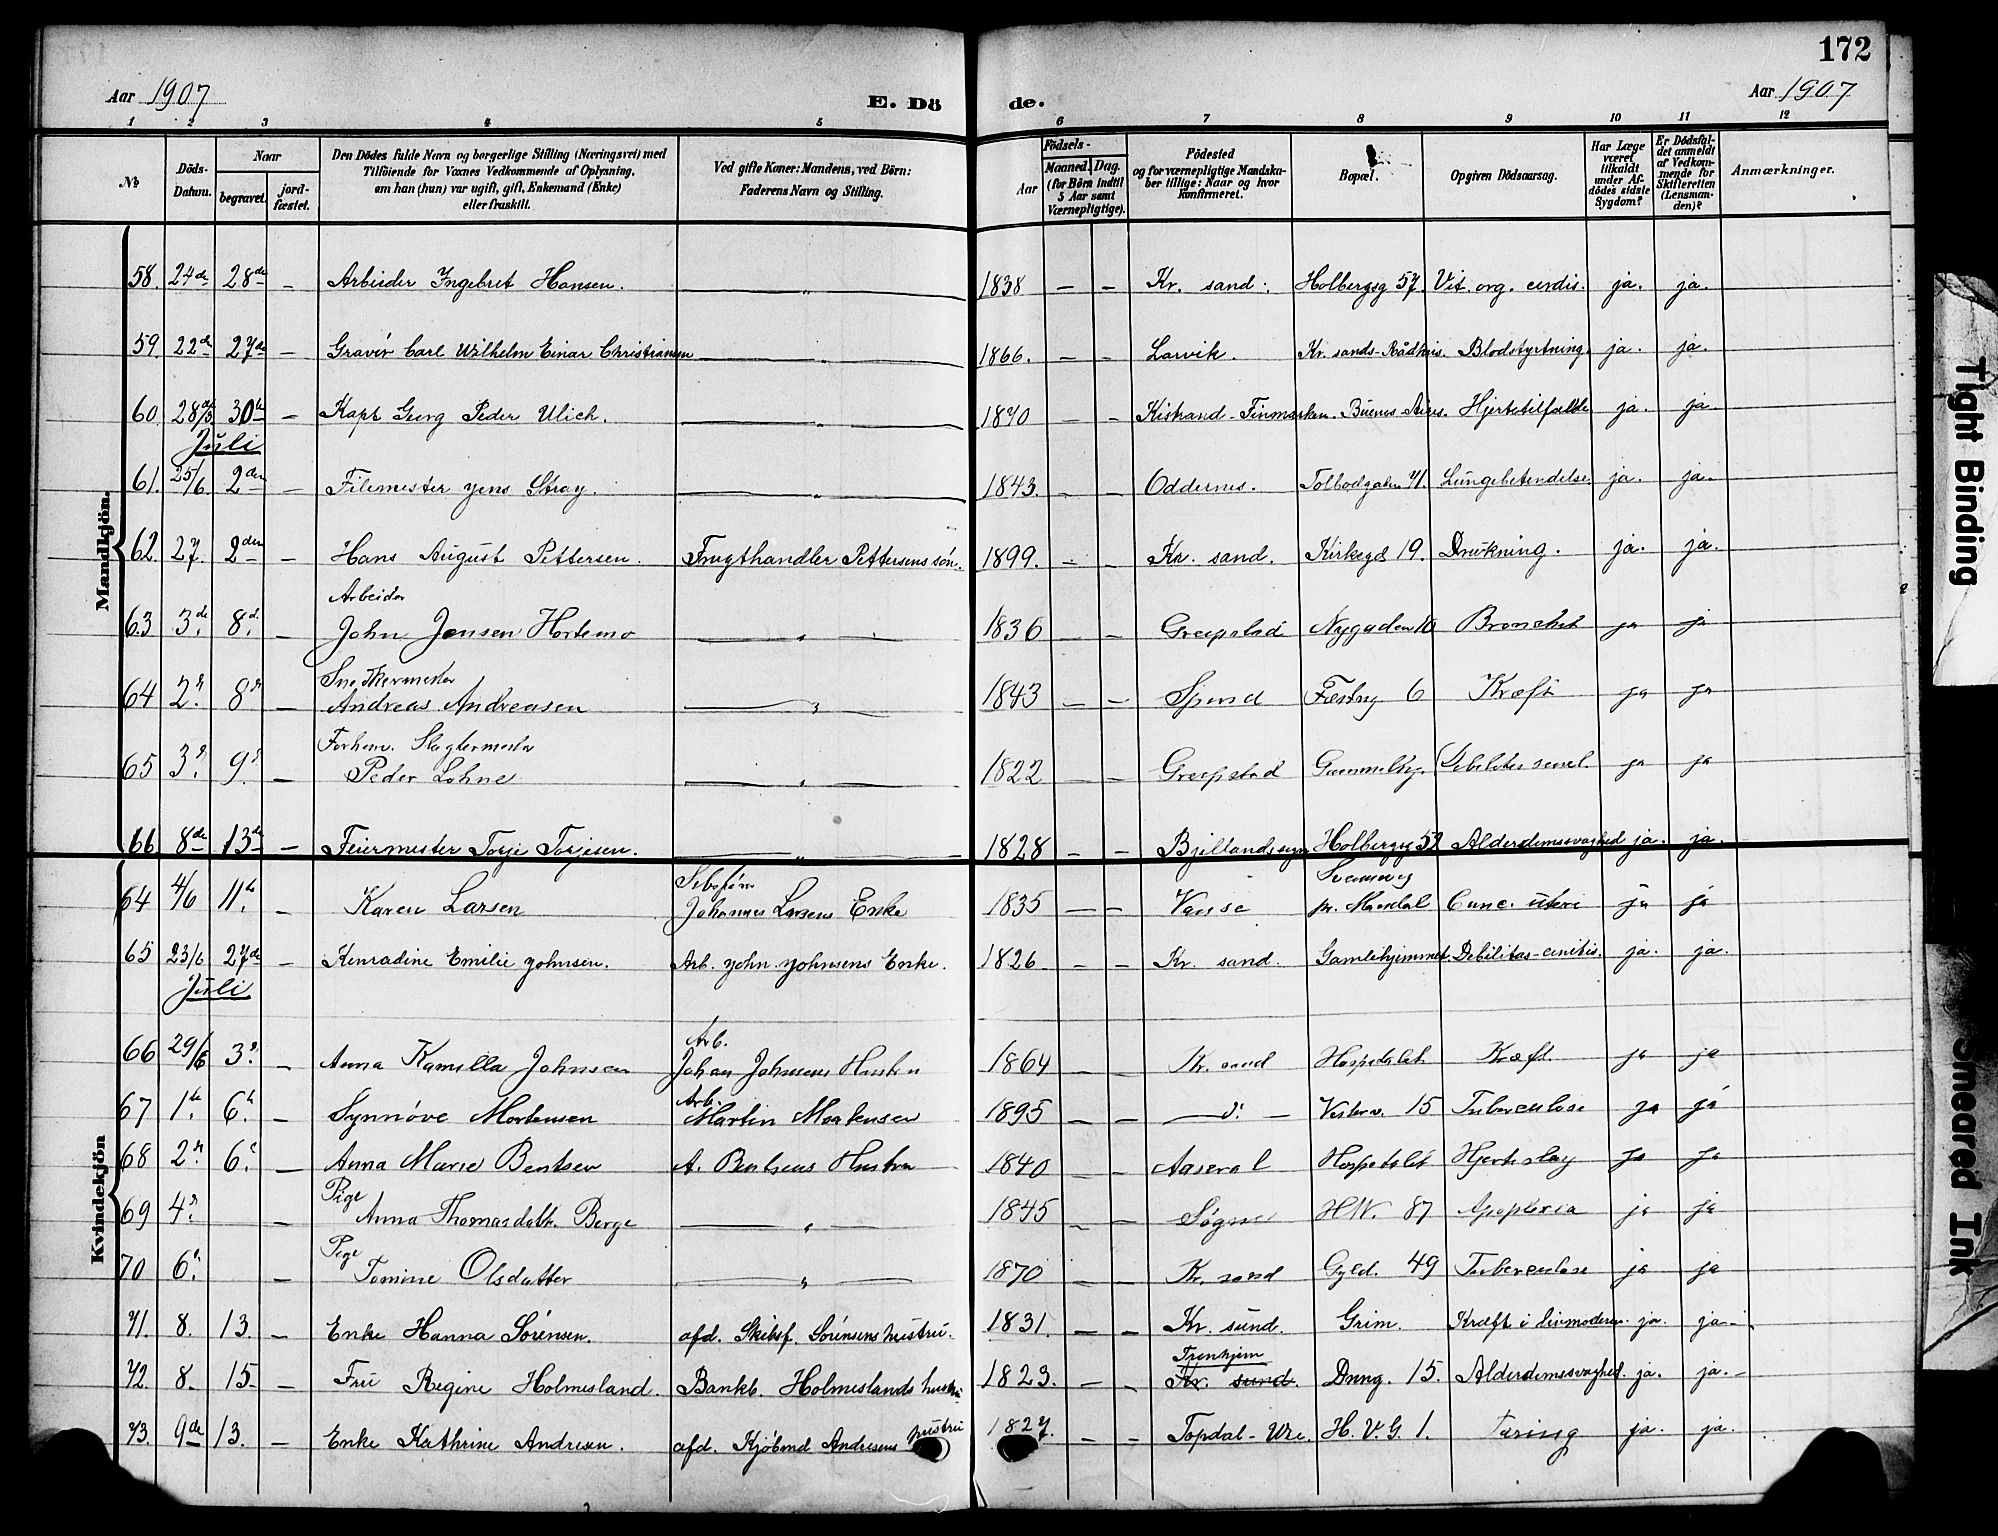 172
Aar 1907
E. Dö
de.
Aar 1907
1 2 3 4 5 6 7 8 9 10 11 12
№
Döds-Datum.
Naar
begravet.
jord-fæstet.
Den Dödes fulde Navn og borgerlige Stilling (Næringsvei) med
Tilföiende for Voxnes Vedkommende af Oplysning,
om han (hun) var ugift, gift, Enkemand (Enke)
eller fraskilt.
Ved gifte Koner: Mandens, ved Börn:
Faderens Navn og Stilling.
Födsels-
Aar
Maaned. Dag.
(for Börn indtil
5 Aar samt
Værnepligtige).
Födested
og for værnepligtige Mandska-
ber tillige: Naar og hvor
konfirmeret.
Bopæl.
Opgiven Dödsaarsag.
Har Læge
været
tilkaldt
under Af-
dödes sidste
Sygdom?
Er Dödsfal-
det anmeldt
af Vedkom-
mende for
Skifteretten
(Lensman-
den)?
Anmærkninger.
Mandkjön.
58. 24de 28de – Arbeider Ingebret Hansen. – „ – 1838 – – Kr. sand. Holbergsg 57. Vit. org. cordis. ja. ja.
59. 22de 27de – Gravör Carl Wilhelm Einar Christiansen – „ – 1866. – – Larvik. Kr. sands-Rådhus. Blodstyrtning. ja. ja.
60. 28de/3 30te – Kapt Georg Peder Ulich. – „ – 1840 – – Kistrand-Finmarken. Buenos-Aires. Hjertetilfælde ja. ja.
Juli
61. 25/6 2den – Filemester Jens Stray. – „ – 1843. – – Oddernes. Tolbodgaden 71. Lungebetendelse. ja. ja.
62. 27. 2den – Hans August Pettersen. Frugthandler Pettersens sön. 1899. – – Kr. sand. Kirkegd 19. Drukning. ja. ja.
Arbeider
63 3de. 8d. – John Jensen Hortemo – „ – 1836 – – Greipstad Nygaden 10 Bronchit ja ja
Snedkermester
64 2n. 8de Andreas Andreasen – „ – 1843 – – Spind Festng 6 Kræft ja ja
Forhenv. Slagtermester
65 3d. 9d. – Peder Lohne – „ – 1822 – – Greipstad Gammelhj. Debilitas senil. ja ja
66 8de 13de – Feiermester Torje Torjesen. – „ – 1828 – – Bjellandssogn Holbergsg 52 Alderdomssvaghed ja. ja.
Kvindekjön
64 4/6 11te. – Karen Larsen Johannes Larsens Enke 1835 – – Vanse pr. Mandal Canc. uteri ja ja
65 23/6 27de – Konradine Emilie Johnsen. Arb. John Johnsens Enke. 1826 – – Kr. sand. Gamlehjemmet. Debilitas-cenitis. ja. ja.
Juli
Arb.
66 29/6 3d. – Anna Kamilla Johnsen Johan Johnsens Hustru 1864 – – Kr. sand Hospitalet Kræft ja ja
Arb.
67 1te. 6te. – Synnöve Mortensen Martin Mortensen 1895 – – – d: – Vesterv. 15 Tuberculose ja ja
68 2n. 6t. – Anna Marie Bentsen A. Bentsens Hustru 1840 – – Aaseral Hospitalet Hjerteslag ja ja
Pige
69 4d. – Anna Thomasdatt. Berge – „ – 1845 – – Søgne H.W. 87 Apoplexia ja ja
Pige
70 6t. – Tomine Olsdatter – „ – 1870 – – Kr. sand Gyld. 49 Tuberculose ja ja
71. 8. 13 – Enke Hanna Sörensen. afd. Skibsf. Sörensens hustru. 1831. – – Kr. sund. Grim. Kræft i livmoderen. ja. ja.
Tronhjem
72. 8. 15. – Fru Regine Holmesland. Bankb. Holmeslands hustru 1823. – – Kr. sund. Dnng. 15. Alderdomssvaghed. ja. ja.
73. 9de 13. – Enke Kathrine Andresen. afd. Kjöbmd Andresens hustru 1827. – – Topdal-Ure. H.V.G. 1. Tæring ja. ja.
Tight Binding
Smeared Ink